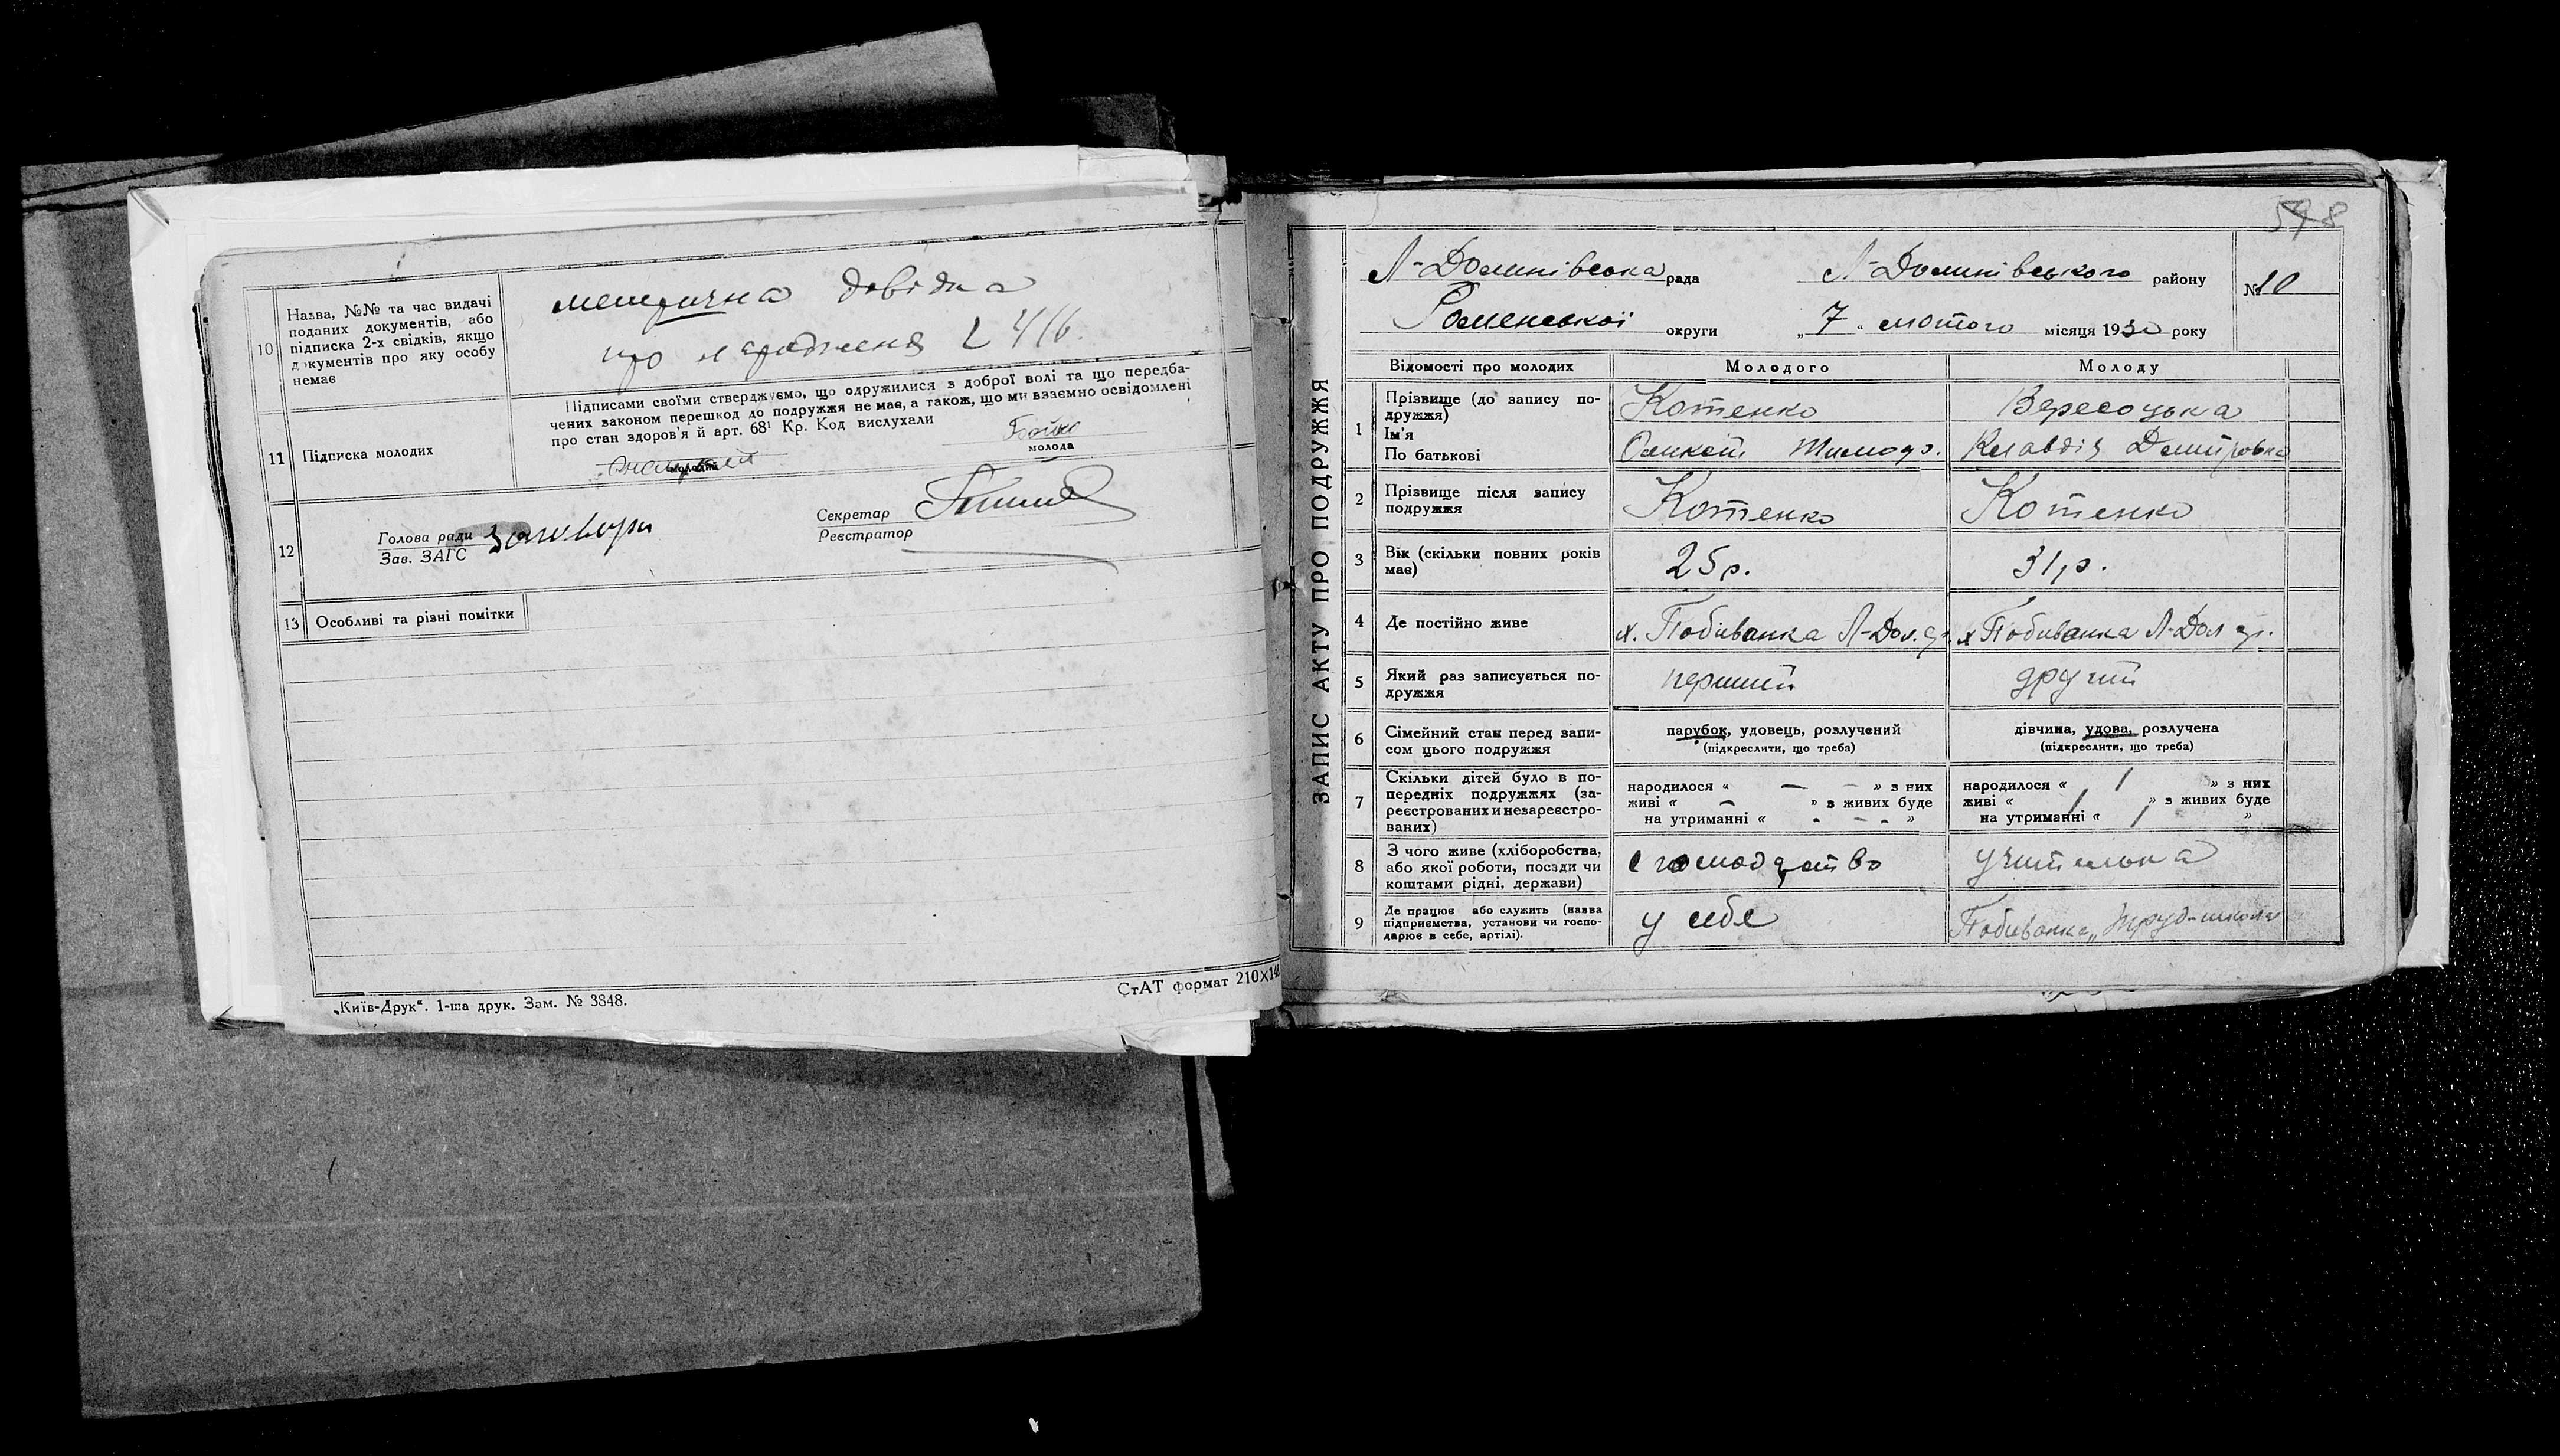 10
Назва, №№ та час видачі
поданих документів, або
підписка 2-х свідків, якщо
документів про яку особу
немає
метрична довідка
про народження
11
Підписка молодих
Підписами своїми стверджуємо, що одружилися з доброї волі та що передба-
чених законом перешкод до подружжя не має, а також, що ми взаємно освідомлені
про стан здоров'я й арт. 68¹ Кр. Код вислухали
молодий
Бойко
молода
12
Голова ради
Зав. ЗАГС
Секретар
Реєстратор
13
Особливі та різні помітки
„Київ-Друк“. 1-ша друк. Зам. № 3848.
СтАТ формат 210×14
ЗАПИС АКТУ ПРО ПОДРУЖЖЯ
Л-Долинівська рада Л-Долинівського району
№ 10
Роменської округи „7“ лютого місяця 1930 року
Відомості про молодих
Молодого
Молоду
1
Прізвище (до запису по-
дружжя)
Ім'я
По батькові
Котенко
Вересоцька
Тимоф.
Клавдія Дмитровна
2
Прізвище після запису
подружжя
Котенко
Котенко
3
Вік (скільки повних років
має)
25 р.
31 р.
4
Де постійно живе
х. Побиванка Л-Дол. р.
х Побиванка Л-Дол р.
5
Який раз записується по-
дружжя
перший
другий
6
Сімейний стан перед запи-
сом цього подружжя
парубок, удовець, розлучений
(підкреслити, що треба)
дівчина, удова, розлучена
(підкреслити, що треба)
7
Скільки дітей було в по-
передніх подружжях (за-
реєстрованих и незареєстро-
ваних)
народилося « — — » з них
живі « — » з живих буде
на утриманні « - — - »
народилося « 1 » з них
живі « 1 » з живих буде
на утриманні « 1 »
8
З чого живе (хліборобства,
або якої роботи, посади чи
коштами рідні, держави)
учителька
9
Де працює або служить (назва
підприємства, установи чи госпо-
дарює в себе, артілі).
у себе
Побиванка „Труд-школа